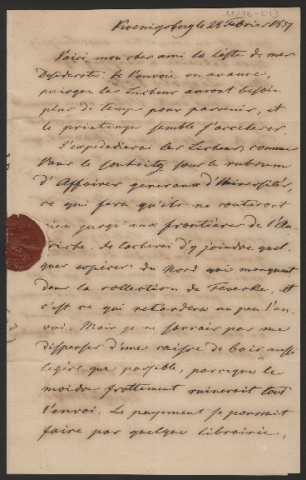 Koenigsberg le 28 Fevrier 1837
Voici, mon cher ami la liste de mes
Desiderata. Je l'envoie en avance,
puisque les Lixteurs auront besoin
plus de temps pour parvenir, et
le printemps semble s'approcher.
J'expedierai les Lixteurs, comme
Vous le souhaitez sous le rubrum
d'Affaires generaux d'Universités,
ce qui fera qu'ils ne couteront
rien jusqu'aux frontières de l'Au
triche. Je tacherai d'y joindre quel
ques espèces du Nord qui manquent
dans la collection de
c'est ce qui retardera un peu l'en
voi. Mais je ne saurais pas me
dispenser d'une caisse de bois aussi
legère que possible, parceque le
moindre frottement ruinerait tout
l'envoi. Le payement se pourrait
faire par quelque librairie,